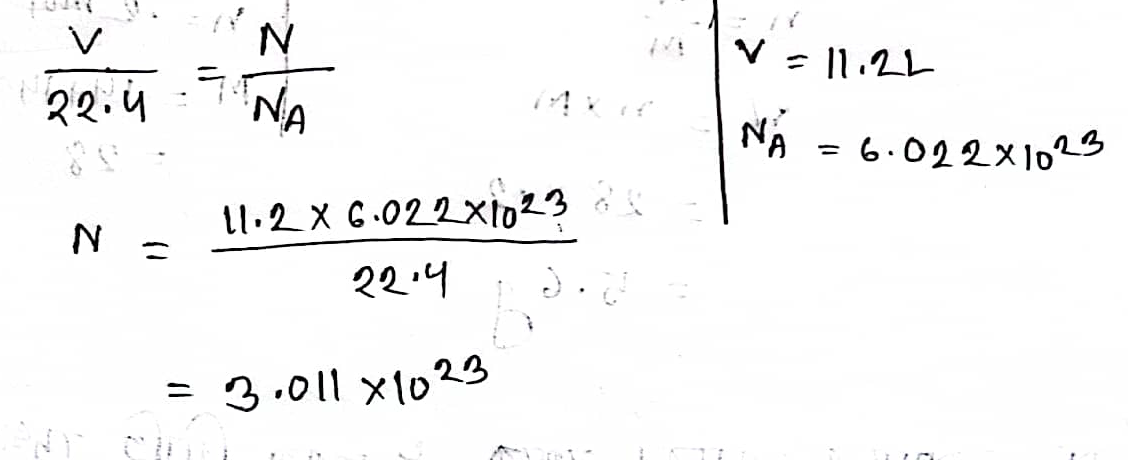 V/22.4 = N/NA
V = 11.2L
NA = 6.022×10²³
N = 11.2 × 6.022×10²³/22.4
= 3.011 ×10²³